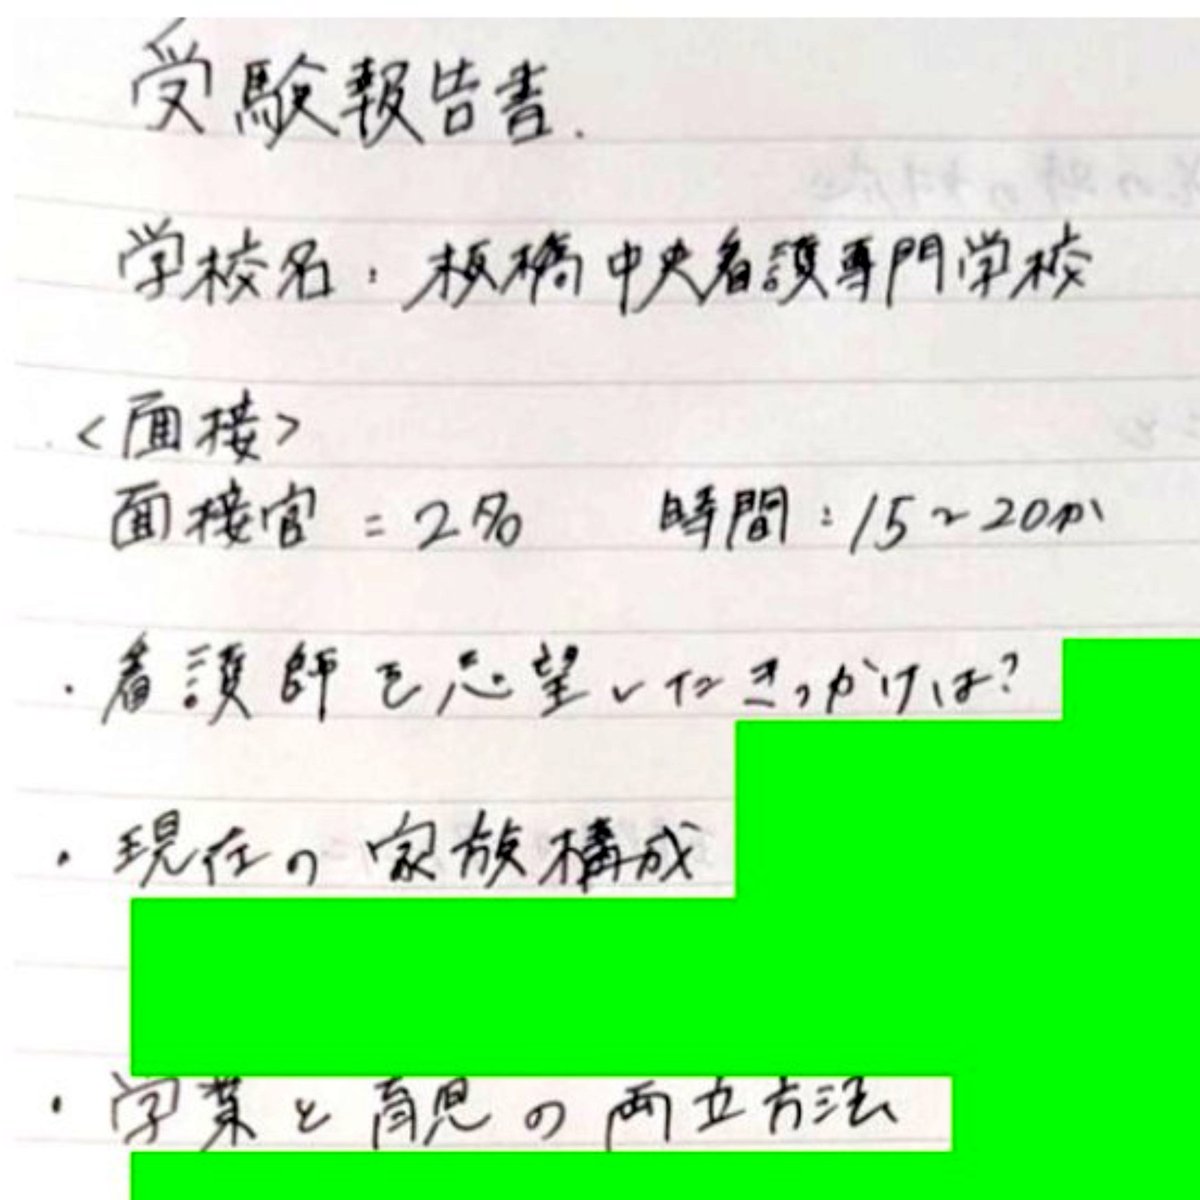 受験報告書.
学校名:板橋中央看護専門学校
<面接>
面接官=2名 時間:15~20分
・看護師を志望したきっかけは?
・現在の家族構成
・学業と育児の両立方法